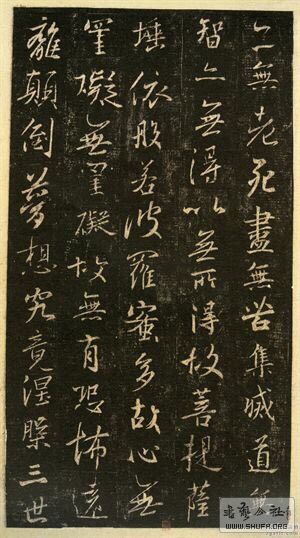 亦無老死盡無苦集滅道無
智亦無得以無所得故菩提薩
埵依般若波羅蜜多故心無
罣礙無罣礙故無有恐怖遠
離顛倒夢想究竟涅槃三世
书艺公社
WWW.SHUFA.ORG